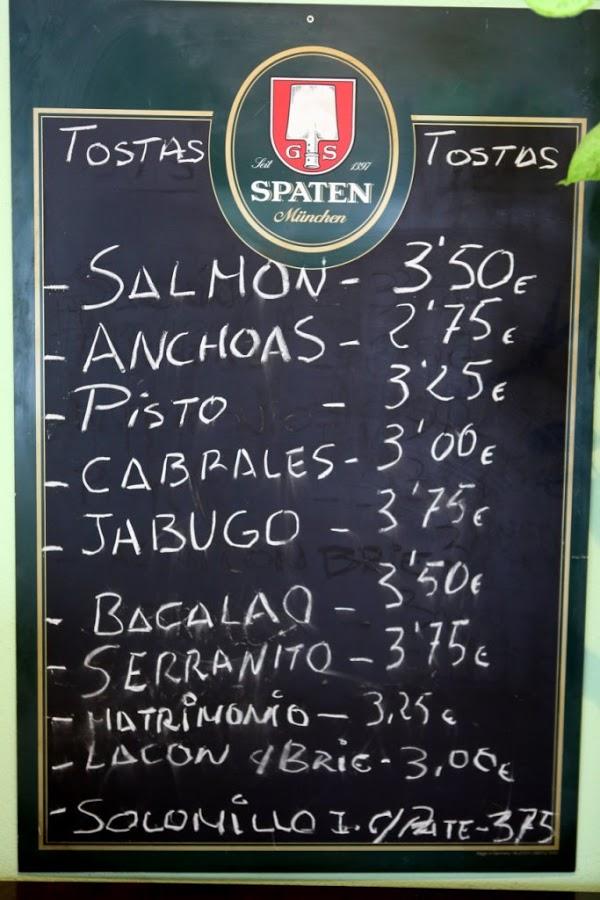 G S
Seit 1397
SPATEN
München
TOSTAS TOSTAS
- SALMON - 3'50€
- ANCHOAS - 2'75€
- PISTO - 3'25€
- CABRALES - 3'00€
- JABUGO - 3'75€
- BACALAO - 3'50€
- SERRANITO - 3'75€
- MATRIMONIO - 3,25€
- LACON Y BRIE - 3,00€
- SOLOMILLO I. C/PATE - 3,75